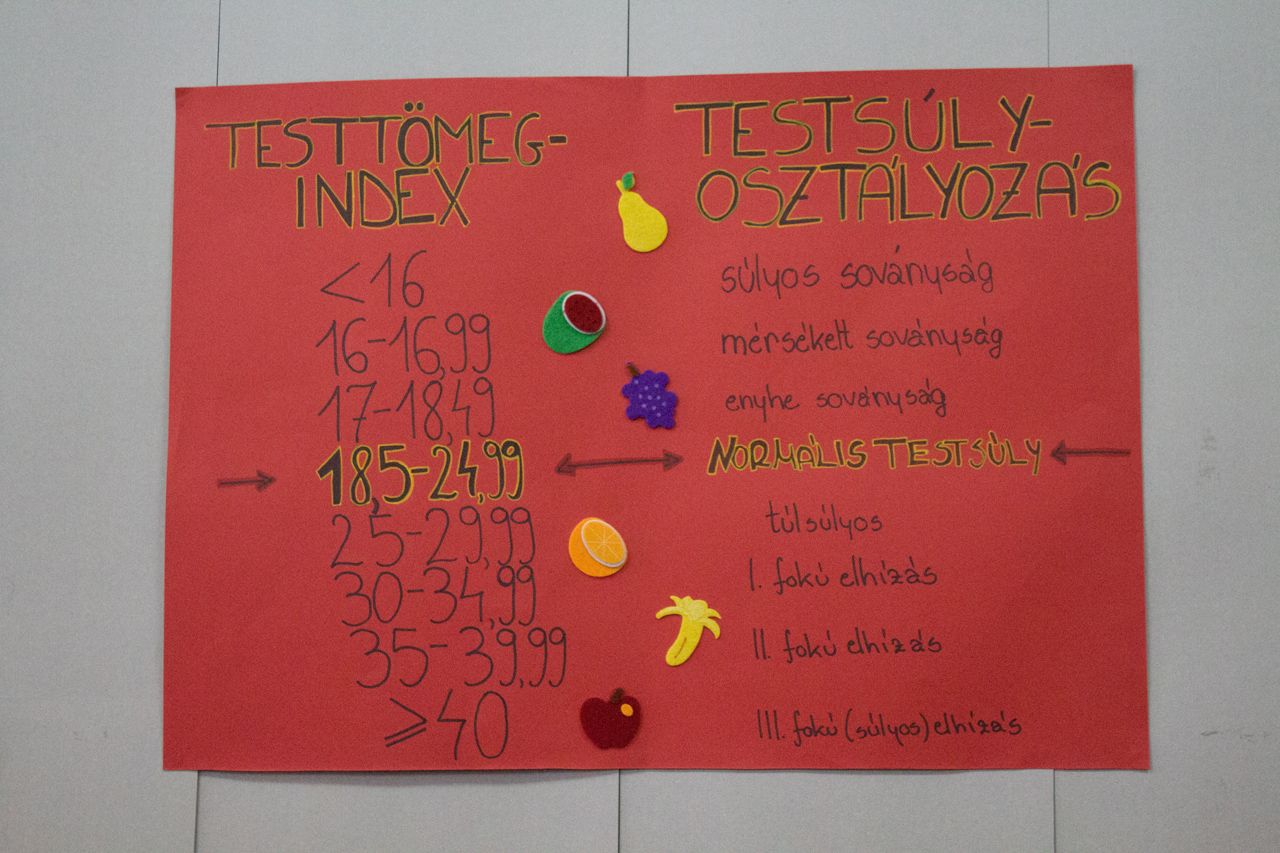 TESTTÖMEG-
INDEX
TESTSÚLY-
OSZTÁLYOZÁS
<16 súlyos soványság
16-16,99 mérsékelt soványság
17-18,49 enyhe soványság
→ 18,5-24,99 ↔ NORMÁLIS TESTSÚLY ←
25-29,99 túlsúlyos
30-34,99 I. fokú elhízás
35-39,99 II. fokú elhízás
≥40 III. fokú (súlyos) elhízás